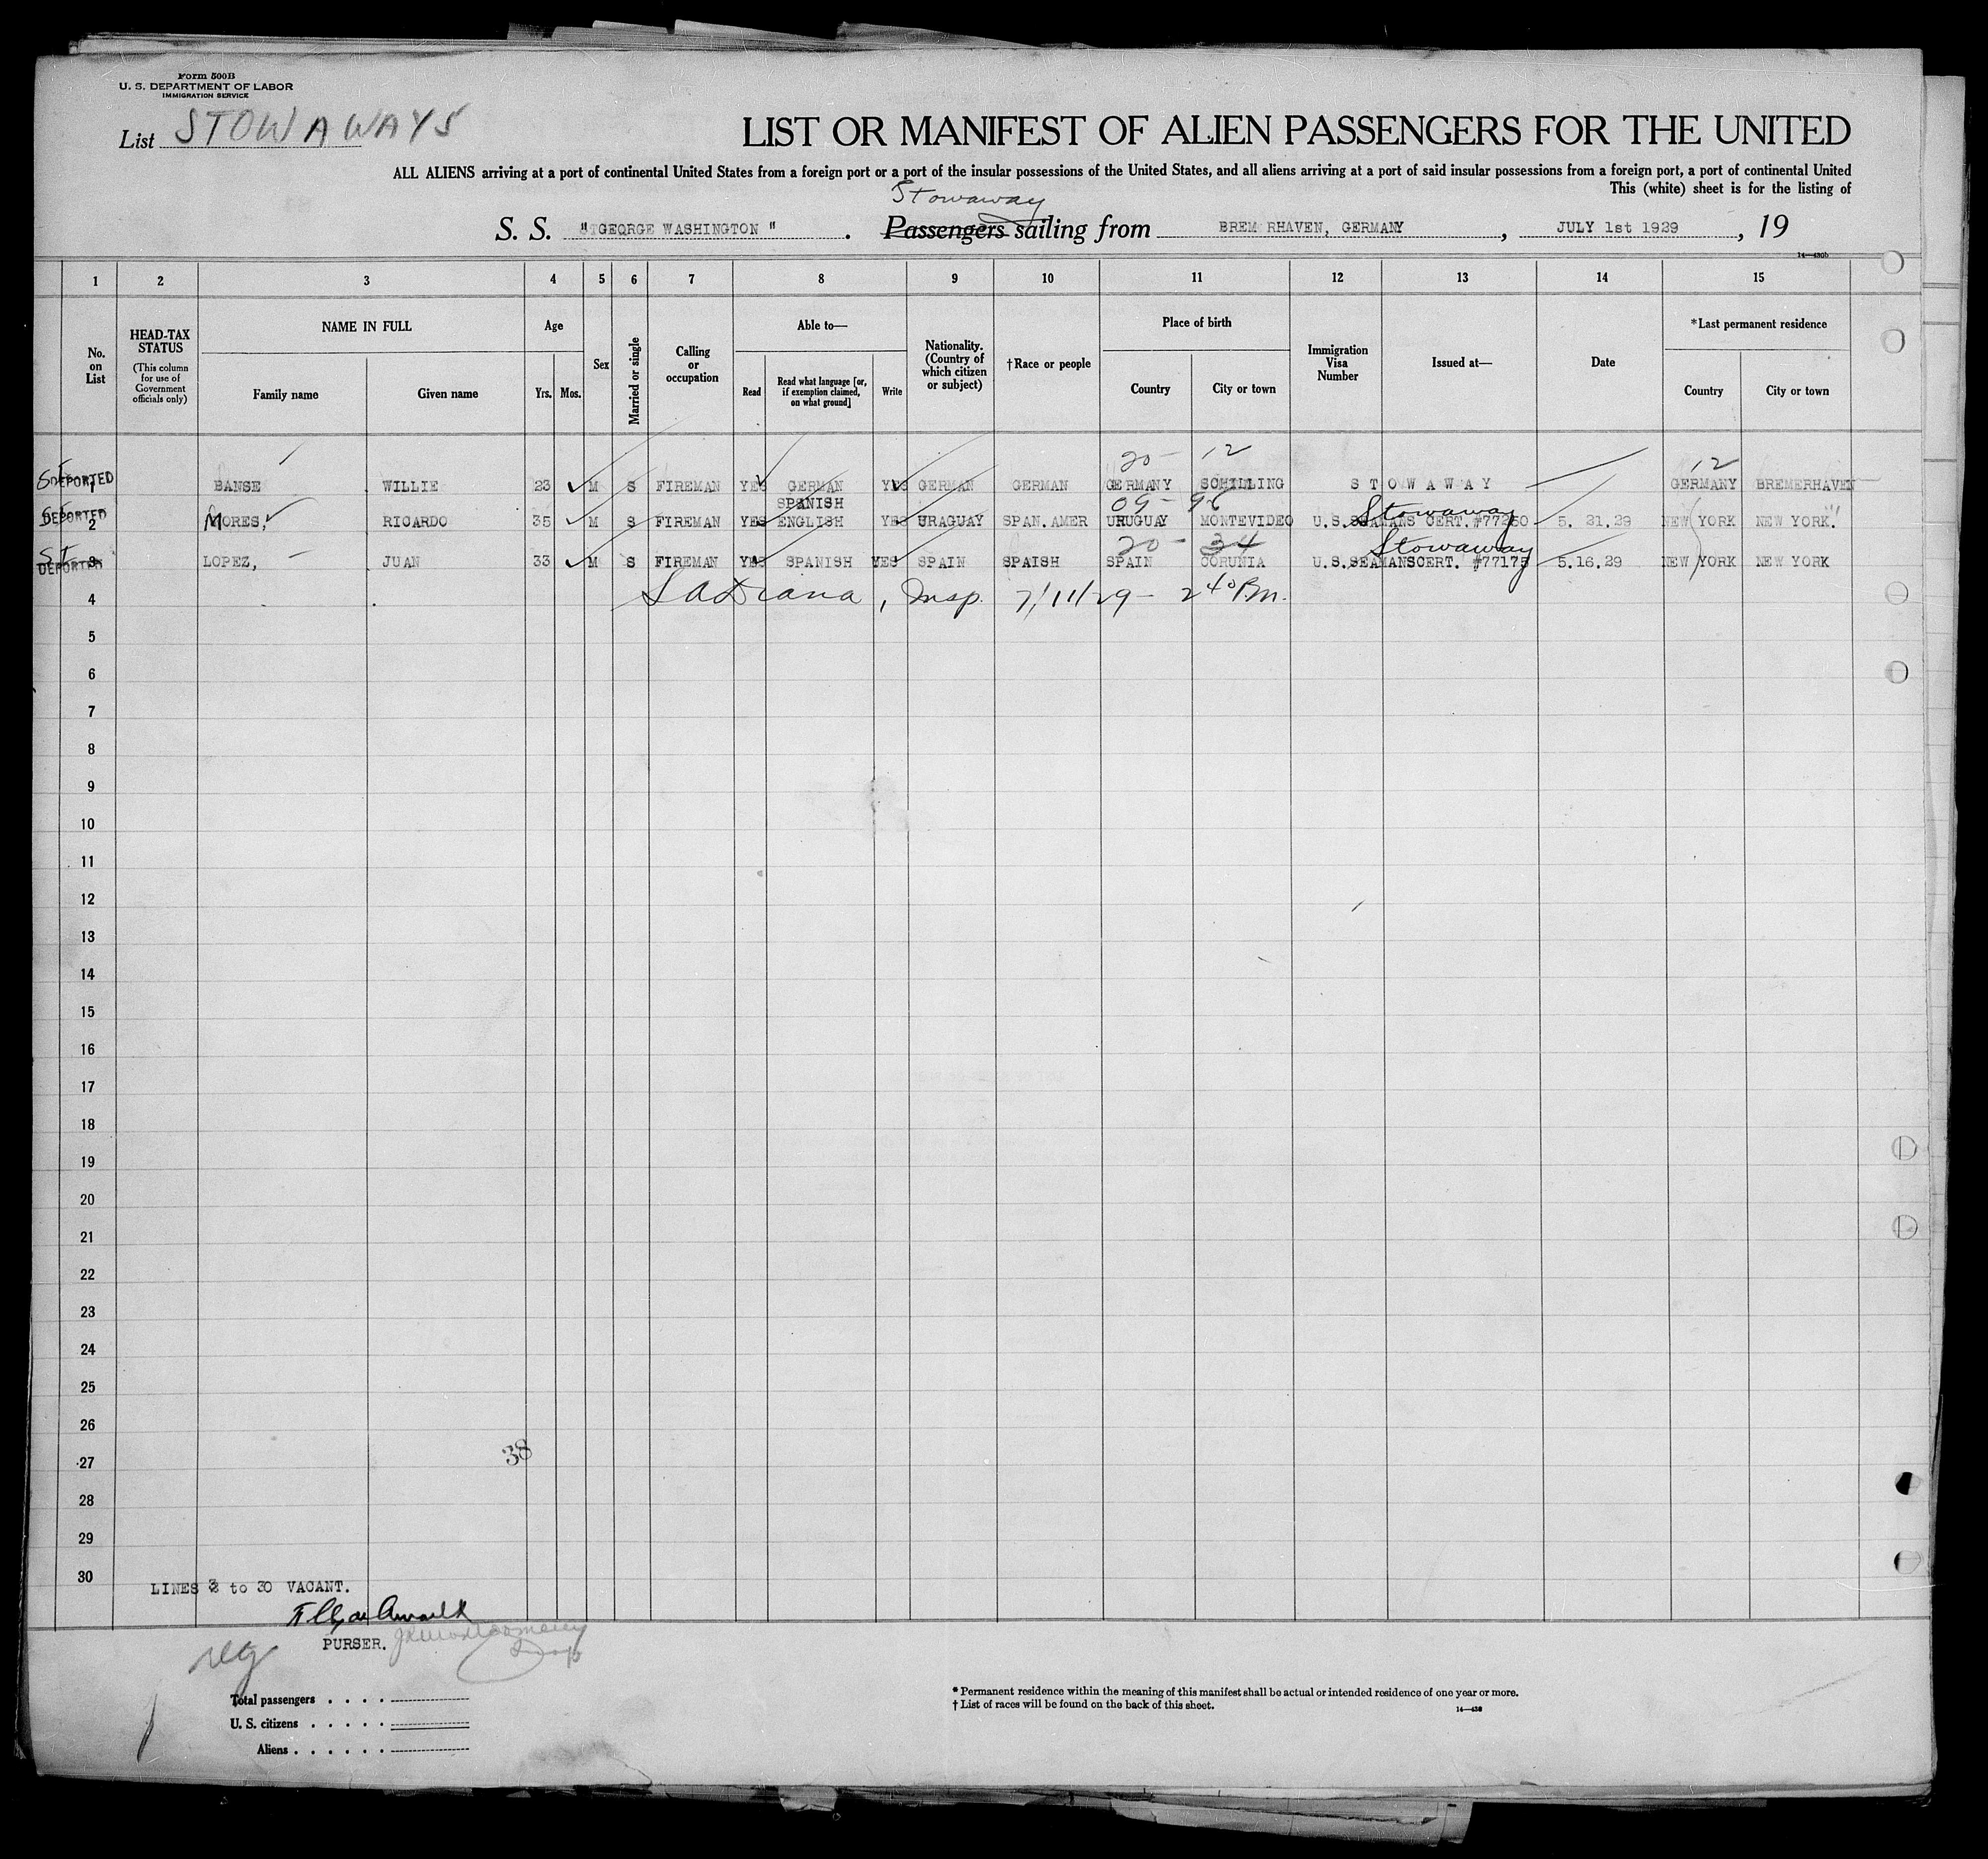 Form 500B
U. S. DEPARTMENT OF LABOR
IMMIGRATION SERVICE
List STOWAWAYS
LIST OR MANIFEST OF ALIEN PASSENGERS FOR THE UNITED
ALL ALIENS arriving at a port of continental United States from a foreign port or a port of the insular possessions of the United States, and all aliens arriving at a port of said insular possessions from a foreign port, a port of continental United
This (white) sheet is for the listing of
Stowaway
S. S. "GEORGE WASHINGTON" . Passengers sailing from BREM RHAVEN, GERMANY , JULY 1st 1929 , 19
14—430b
1 2 3 4 5 6 7 8 9 10 11 12 13 14 15
No. on List
HEAD-TAX STATUS
(This column for use of Government officials only)
NAME IN FULL
Family name Given name
Age
Yrs. Mos.
Sex
Married or single
Calling or occupation
Able to—
Read
Read what language [or, if exemption claimed, on what ground]
Write
Nationality. (Country of which citizen or subject)
†Race or people
Place of birth
Country City or town
Immigration Visa Number
Issued at—
Date
*Last permanent residence
Country City or town
20- 12 12
ST DEPORTED 1 BANSE WILLIE 23 M S FIREMAN YES GERMAN YES GERMAN GERMAN GERMANY SCHILLING STOWAWAY GERMANY BREMERHAVEN
SPANISH 09- 96 Stowaway
DEPORTED 2 MORES, RICARDO 35 M S FIREMAN YES ENGLISH YES URAGUAY SPAN.AMER URUGUAY MONTEVIDEO U.S.SEAMANS CERT.#77250 5. 21.29 NEW YORK NEW YORK.
20- 34 Stowaway
ST DEPORTED 3 LOPEZ, JUAN 33 M S FIREMAN YES SPANISH YES SPAIN SPAISH SPAIN CORUNIA U.S.SEAMANSCERT. #77175 5.16.29 NEW YORK NEW YORK
4 , Insp. 7/11/29- 2 40 P.m.
5
6
7
8
9
10
11
12
13
14
15
16
17
18
19
20
21
22
23
24
25
26
27 38
28
29
30
LINES 3 to 30 VACANT.
PURSER.
Total passengers . . . .
U. S. citizens . . . . .
Aliens . . . . . .
* Permanent residence within the meaning of this manifest shall be actual or intended residence of one year or more.
† List of races will be found on the back of this sheet.
14—430